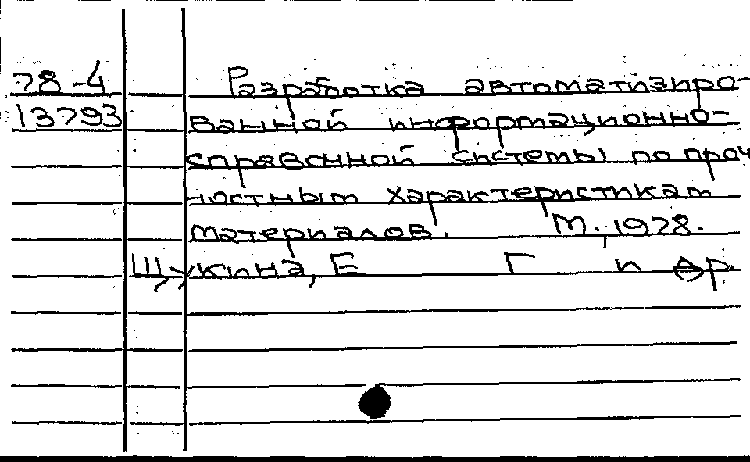 78-4 Разработка автоматизиро-
13793 ванной информационно-
справочной системы по проч
ностным характеристикам
материалов. М., 1978.
Щукина, Е Г и др